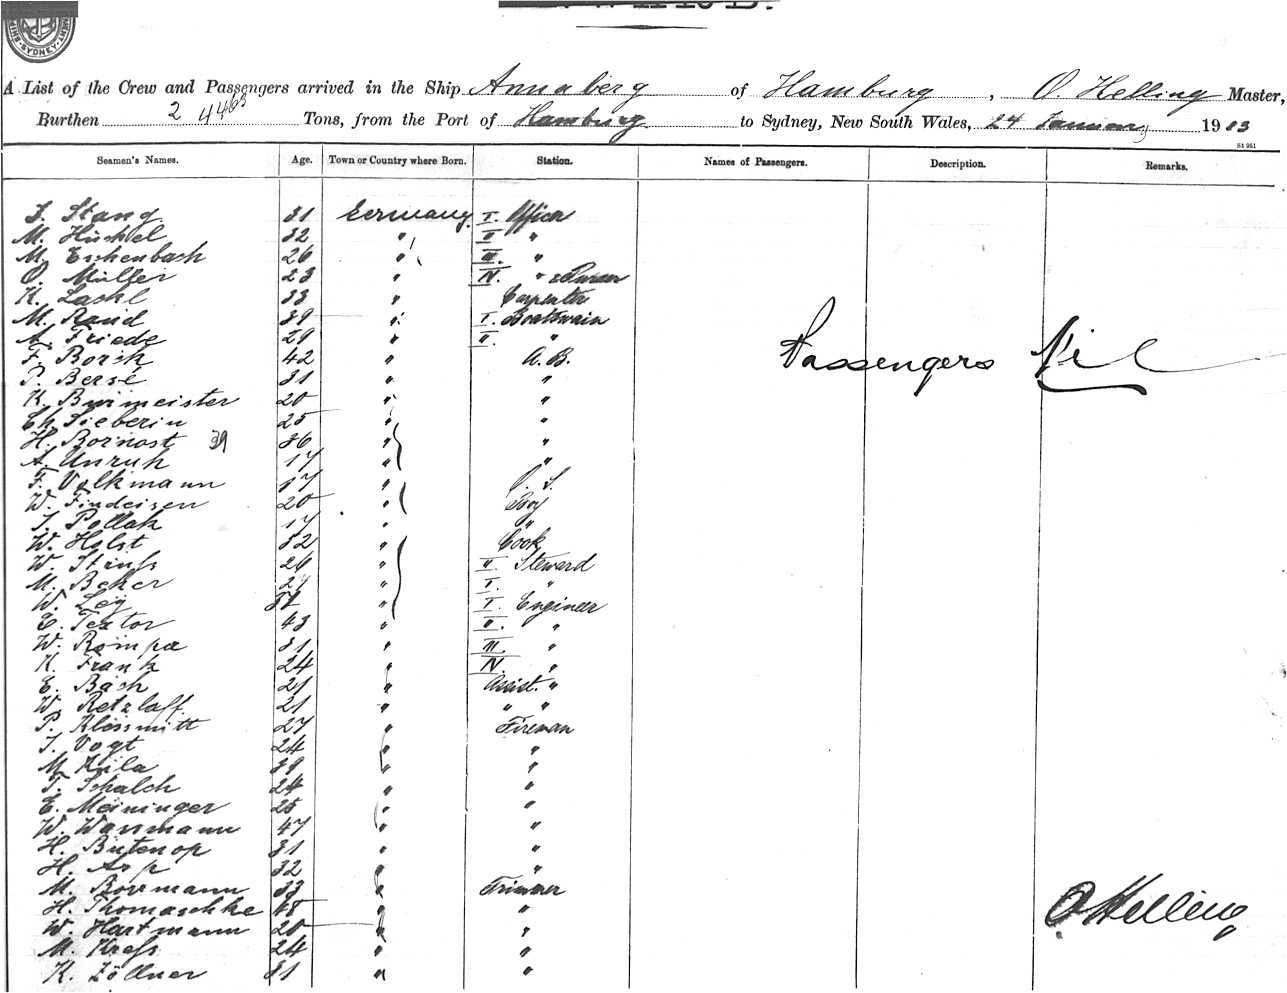 SYDNEY
A List of the Crew and Passengers arrived in the Ship Annaberg of Hamburg, O. Helling Master,
Burthen 2 446 Tons, from the Port of Hamburg to Sydney, New South Wales, 24 January 1903
Seamen's Names. Age. Town or Country where Born. Station. Names of Passengers. Description. Remarks.
Stang 31 Germany I. Officer
M. Hückel 32 " II "
M. Eschenbach 26 " III. "
O. Müller 23 " IV. "
K. Lackl 33 " Carpenter
M. Rand 39 " I. Boatswain
A. Friede 29 " II. "
F. Borsh 42 " A.B.
P. Berse 31 " "
K. Burmeister 20 " "
Ch. Sieberin 25 " "
H. Bornost 39 36 " "
A. Unruh 17 " "
F. Volkmann 17 " O.S.
W. Findeisen 20 " Boy
J. Pollak 17 " "
W. Holst 32 " Cook
W. 26 " II. Steward
M. Beker 21 " I. "
W. Ley " I. Engineer
E. Textor 43 " II. "
W. Römpa 31 " III. "
K. Frank 24 " IV. "
E. Bäsh 21 " Assist. "
W. Retzlaff 21 " " "
P. Klessmitt 27 " Fireman
J. Vogt 24 " "
M. Krila 39 " "
T. Schalch 24 " "
E. Meininger 25 " "
W. Wassmann 47 " "
H. Bütenop 31 " "
H. Arp 32 " "
M. Borrmann 33 " Trimmer
H. Thomaschke 48 " "
W. Hartmann 20 " "
M. Kress 24 " "
K. Zöllner 31 " "
Passengers Nil
O Helling